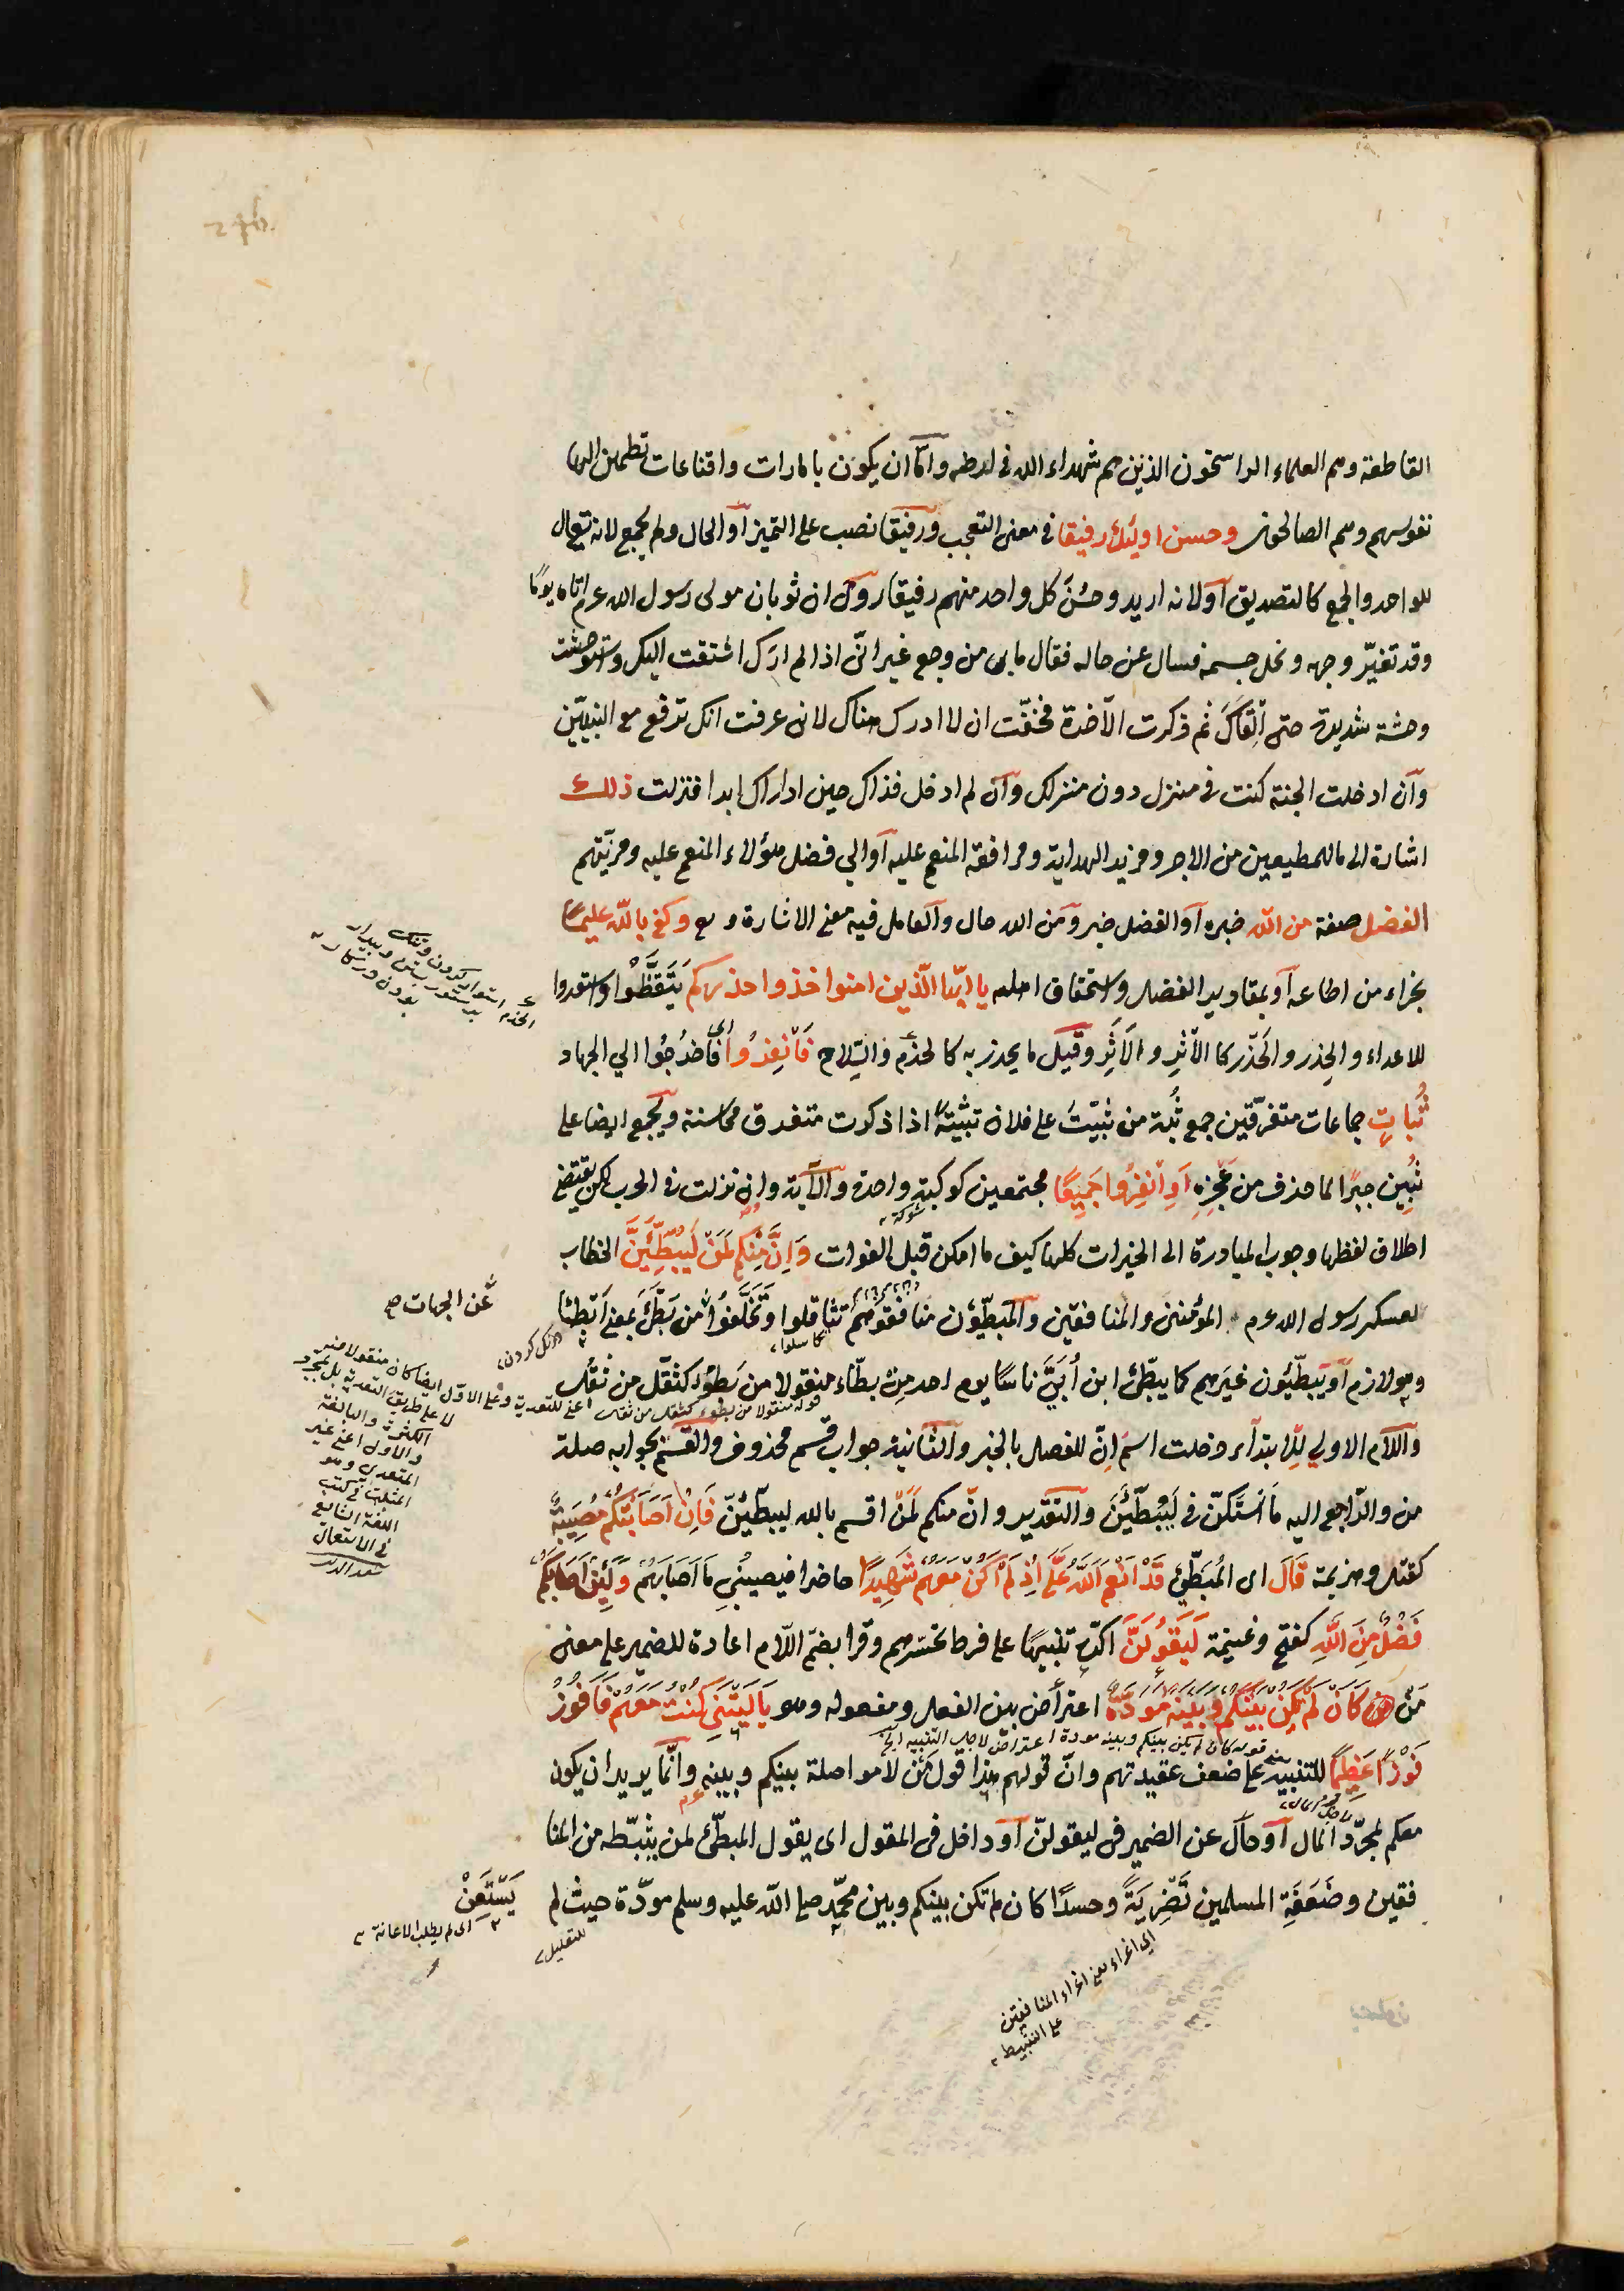 القاطعة وهم العلماء الراسخون الذين هم شهداء الله في ارضه واما ان يكون بامارات واقناعات تطمئن اليها
نفوسهم وهم الصالحون وحسن اولئك رفيقا في معنى التعجب ورفيقا نصب على التميز او الحال ولم يجمع لانه يقال
للواحد والجمع كالصديق او لانه اريد وحسن كل واحد منهم رفيقا روى ان ثوبان مولى رسول الله عم اتاه يوما
وقد تغير وجهه ونحل جسمه فسال عن حاله فقال ما بي من وجع غير انى اذا لم ارك اشتقت اليك واستوحشت
وحشة شديدة حتى القاك ثم ذكرت الآخرة فخفت ان لا ادرك هناك لانى عرفت انك ترفع مع النبيين
وان ادخلت الجنة كنت في منزل دون منزلك وان لم ادخل فذاك حين لا اراك ابدا فنزلت ذلك
اشارة الى ما للمطيعين من الاجر ومزيد الهداية ومرافقة المنعم عليه او الي فضل هؤلاء المنعم عليه ومزيتهم
الفضل صفة من الله خبره او الفضل خبر ومن الله حال والعامل فيه معنى الاشارة وكفى بالله عليما
بجزاء من اطاعه او بمقادير الفضل واستحقاق اهله يا ايها الذين امنوا خذوا حذركم تيقظوا واستعدوا
للاعداء والحِذر والحَذر كالاثر والاثر وقيل ما يحذر به كالحزم والسلاح فانفروا فاخرجوا الي الجهاد
ثبات جماعات متفرقين جمع ثبة من ثبيت على فلان تثبية اذا ذكرت متفرق محاسنه ويجمع ايضا على
ثبين جبرا لما حذف من عجزه او انفروا جميعا مجتمعين كوكبة واحدة والآية وان نزلت في الحرب لكن يقتضى
اطلاق لفظها وجوب المبادرة الى الخيرات كلها كيف ما امكن قبل الفوات وان منكم لمن ليبطئن الخطاب
لعسكر رسول الله عم المؤمنين والمنافقين والمبطئون منافقوهم تثاقلوا وتخلفوا من بطأ بمعنى ابطأ
عن الجهاد صح
وهو لازم او يبطئون غيرهم كما يبطئ ابن ابي ناسا يوم احد من بطاء منقولا من بطؤ كثقل من ثقل
واللام الاولي للابتداء دخلت اسم ان للفصل بالخبر والثانية جواب قسم محذوف والقسم بجوابه صلة
من والراجع اليه ما استكن في ليبطئن والتقدير وان منكم لمن اقسم بالله ليبطئن فان اصابتكم مصيبة
كقتل وهزيمة قال اى المبطئ قد انعم الله على اذ لم اكن معهم شهيدا حاضرا فيصيبني ما اصابهم ولئن اصابكم
فضل من الله كفتح وغنيمة ليقولن اكده تنبيها على فرط تحسرهم وقرا بضم اللام اعادة للضمير على معنى
من كان لم تكن بينكم وبينه مودة اعتراض بين الفعل ومفعوله وهو يا ليتني كنت معهم فافوز
قوله كان لم يكن بينكم وبينه مودة اعتراض لاجل التنبيه الخ
فوزا عظيما للتنبيه على ضعف عقيدتهم وان قولهم هذا قول من لا مواصلة بينكم وبينه وانما يريد ان يكون
معكم لمجرد المال او حال عن الضمير في ليقولن او داخل في المقول اى يقول المبطئ لمن يثبطه من المنا
فقين وضعفة المسلمين تضرية وحسدا كان لم تكن بينكم وبين محمد صلى الله عليه وسلم مودة حيث لم
يستعن
اى لم يطلب الاعانة
للتعليل
اي اغراء يعني اغراء المنافقين
على التثبيط
قوله منقولا من بطوء كثقل من ثقل اعني للتعدية وعلى الاول ايضا كان منقولا منه
لا على طريق التعدية بل لمجرد
الكثرة والمبالغة
والاول اعنى غير
المتعدى وهو
المثبت في كتب
اللغة الشايع
في الاستعمال
سعد الدين